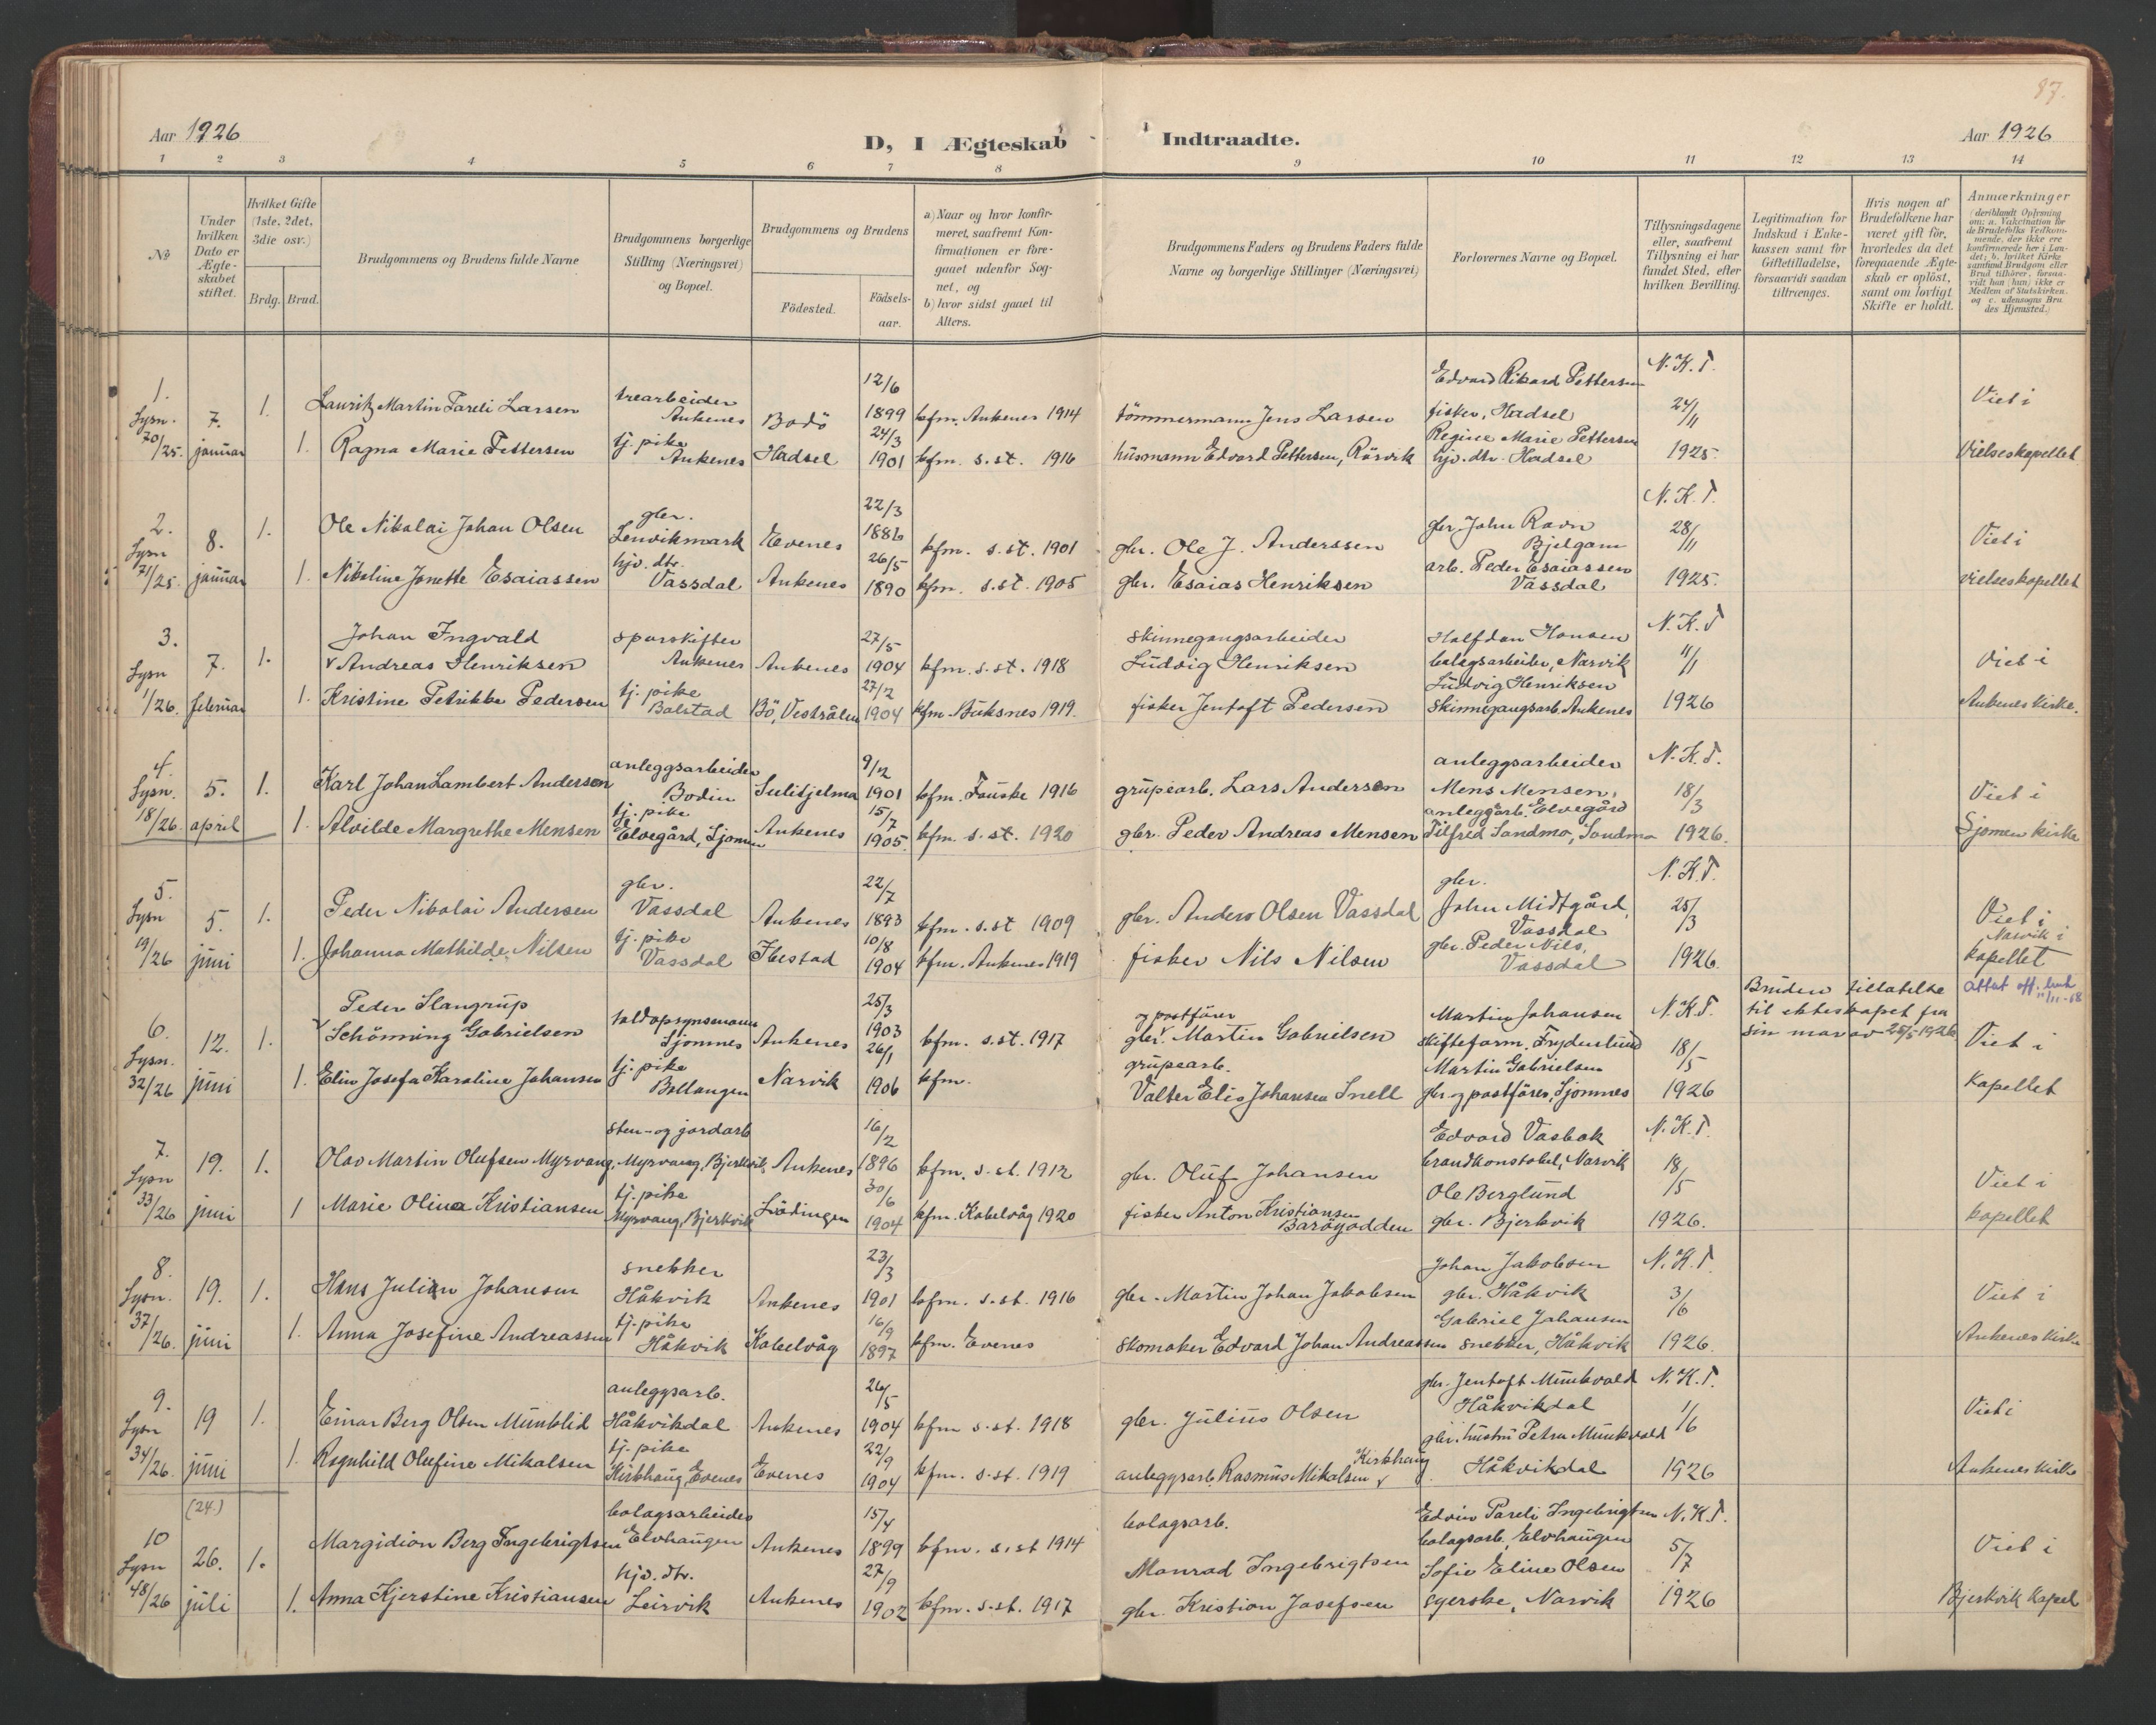 87.
Aar 1926
D, I Ægteskab Indtraadte.
Aar 1926
1 2 3 4 5 6 7 8 9 10 11 12 13 14
No
Under hvilken Dato er Ægteskabet stiftet.
Hvilket Gifte (1ste, 2det, 3die osv.)
Brdg. Brud.
Brudgommens og Brudens fulde Navne
Brudgommens borgerlige Stilling (Næringsvei) og Bopæl.
Brudgommens og Brudens
Födested.
Födselsaar.
a) Naar og hvor konfirmeret, saafremt Konfirmationen er foregaaet udenfor Sognet, og
b) hvor sidst gaaet til Alters.
Brudgommens Faders og Brudens Faders fulde Navne og borgerlige Stillinger (Næringsvei)
Forlovernes Navne og Bopæl.
Tillysningsdagene eller, saafremt Tillysning ei har fundet Sted, efter hvilken Bevilling.
Legitimation for Indskud i Enkekassen samt for Giftetilladelse, forsaavidt saadan tiltrænges.
Hvis nogen af Brudefolkene har været gift för, hvorledes da det foregaaende Ægteskab er oplöst, samt om lovligt Skifte er holdt.
Anmærkninger
(deriblandt Oplysning om: a. Vakcination for de Brudefolks Vedkommende, der ikke ere konfirmerede her i Landet; b. hvilket Kirkesamfund Brudgom eller Brud tilhörer, forsaavidt han (hun) ikke er Medlem af Statskirken. og c. udensogns Brudes Hjemsted.)
1. Lysn. 70/25. 7. januar
1. Lauritz Martin Pareli Larsen trearbeider Ankenes Bodö 12/6 1899 kfm. Ankenes 1914 tömmermann Jens Larsen Edvard Rikard Pettersen fisker, Hadsel N.K.T. 24/11 Viet i
1. Ragna Marie Pettersen tj. pike Ankenes Hadsel 24/3 1901 kfm. s.st. 1916 husmann Edvard Pettersen, Rörvik Regine Marie Pettersen hjv. dtr. Hadsel 1925. Vielseskapellet
2. Lysn 71/25. 8. januar
1. Ole Nikolai Johan Olsen gbr. Lenvikmark Evenes 22/3 1886 kfm. s.st. 1901 gbr. Ole J. Anderssen gbr. John Ravn Bjelgam N.K.T. 28/11 Viet i
1. Nikoline Jonette Esaiassen hjv. dtr. Vassdal Ankenes 26/5 1890 kfm. s.st. 1905 gbr. Esaias Henriksen arb. Peder Esaiassen Vassdal 1925. vielseskapellet
3. Lysn 1/26. 7. februar
1. Johan Ingvald Andreas Henriksen sporskifter Ankenes Ankenes 27/5 1904 kfm. s.st. 1918 skinnegangsarbeider Ludvig Henriksen Halfdan Hansen bolagsarbeider, Narvik N.K.T 11/1 Viet i
1. Kristine Petrikke Pedersen tj. pike Balstad Bö, Vesterålen 27/2 1904 kfm Buksnes 1919. fisker Jentoft Pedersen Ludvig Henriksen Skinnegangsarb. Ankenes 1926 Ankenes kirke.
4. Lysn. 18/26. 5. april
1. Karl Johan Lambert Andersen anleggsarbeider Bodin Sulitjelma 9/12 1901 kfm. Fauske 1916 grubearb. Lars Andersen anleggsarbeider Mens Mensen, Elvegård N.K.T. 18/3 Viet i
1. Alvilde Margrethe Mensen tj. pike Elvegård, Sjomen Ankenes 15/7 1905. kfm. s.st. 1920 gbr. Peder Andreas Mensen anleggarb. Tilfred Sandmo, Sandmo 1926. Sjomen kirke
5. Lysn 19/26 5. juni
1. Peder Nikolai Andersen gbr. Vassdal Ankenes 22/7 1893 kfm. s.st 1909 gbr. Anders Olsen Vassdal gbr. John Midtgård, Vassdal N.K.T. 25/3 Viet i Narvik i
1. Johanna Mathilde Nilsen tj. pike Vassdal Ibestad 10/8 1904 kfm. Ankenes 1919 fisker Nils Nilsen gbr. Peder Nils. Vassdal 1926. kapellet
6. Lysn. 32/26 12. juni
1. Peder Slangrup Schönning Gabrielsen toldopsynsmann Sjomnes Ankenes 25/3 1903 kfm. s.st. 1917 gbr. og postförer Martin Gabrielsen Martin Johansen skifteform. Frydenlund N.K.T. 18/5
Bruden tillatelse til ekteskapet fra sin mor av 25/5 1926
attst off. bruk 11/11-68
Viet i
1. Elin Josefa Karoline Johansen tj. pike Ballangen Narvik 26/1 1906 kfm. grubearb. Valter Elis Johansen Snell Martin Gabrielsen gbr. og postförer, Sjomnes 1926 Kapellet
7. Lysn 33/26 19. juni
1. Olav Martin Olufsen Myrvang sten- og jordarb Myrvang, Bjerkvik Ankenes 16/2 1896 kfm. s.st. 1912 gbr. Oluf Johansen Edvard Vasbak brandkonstabel, Narvik N.K.T. 18/5 Viet i
1 Marie Olina Kristiansen tj. pike Myrvang, Bjerkvik Lödingen 30/6 1904 kfm. Kabelvåg 1920 fisker Anton Kristiansen Baröyodden Ole Berglund gbr. Bjerkvik 1926. kapellet
8. Lysn. 37/26. 19. juni
1. Hans Julian Johansen snekker Håkvik Ankenes 23/3 1901 kfm. s.st. 1916 gbr. Martin Johan Jakobsen Johan Jakobsen gbr. Håkvik N.K.T. 3/6 Viet i
1. Anna Josefine Andreassen tj. pike Håkvik Kabelvåg 16/9 1897 kfm. Evenes skomaker Edvard Johan Andreassen Gabriel Johansen snekker, Håkvik 1926. Ankenes kirke
9. Lysn 34/26. 19 juni
1. Einar Berg Olsen Munklid anleggsarb. Håkvikdal Ankenes 26/5 1904 kfm s.st. 1918 gbr. Julius Olsen gbr. Jentoft Munkvold Håkvikdal N.K.T. 1/6 Viet i
1. Ragnhild Olufine Mikalsen tj. pike Kirkhaug, Evenes Evenes 22/9 1904 kfm. s.st. 1919 anleggsarb. Rasmus Mikalsen Kirkhaug gbr. hustru Petra Munkvold Håkvikdal 1926 Ankenes kirke
(24.)
10 Lysn 48/26 26. juli
1. Margidion Berg Ingebrigtsen bolagsarbeider Elvhaugen Ankenes 15/4 1899 kfm. s.st 1914 bolagsarb. Monrad Ingebrigtsen Edvin Pareli Ingebrigtsen bolagsarb. Elvhaugen N.K.T. 5/7 Viet i
1. Anna Kjerstine Kristiansen hjv. dtr. Leirvik Ankenes 27/9 1902 kfm. s.st. 1917 gbr. Kristian Josefsen Sofie Eline Olsen syerske, Narvik 1926 Bjerkvik kapel